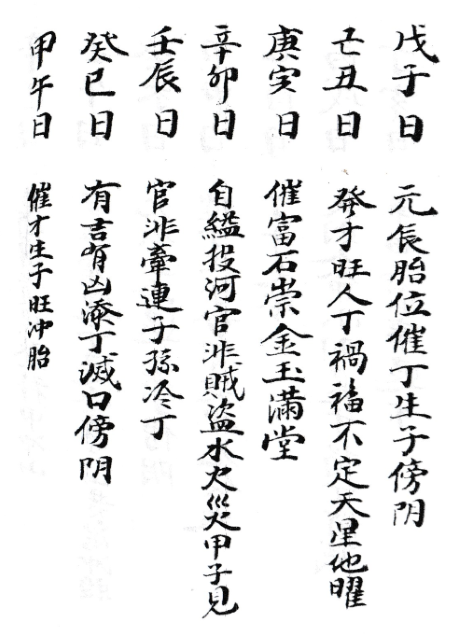 戊子日 元辰胎位催丁生子傍阴
己丑日 發才旺人丁禍福不定天星他曜
庚寅日 催富石崇金玉滿堂
辛卯日 自縊投河官非賊盜水火災甲子見
壬辰日 官非牽連子孫冷丁
癸巳日 有吉有凶添丁滅口傍阴
甲午日 催才生子旺冲胎